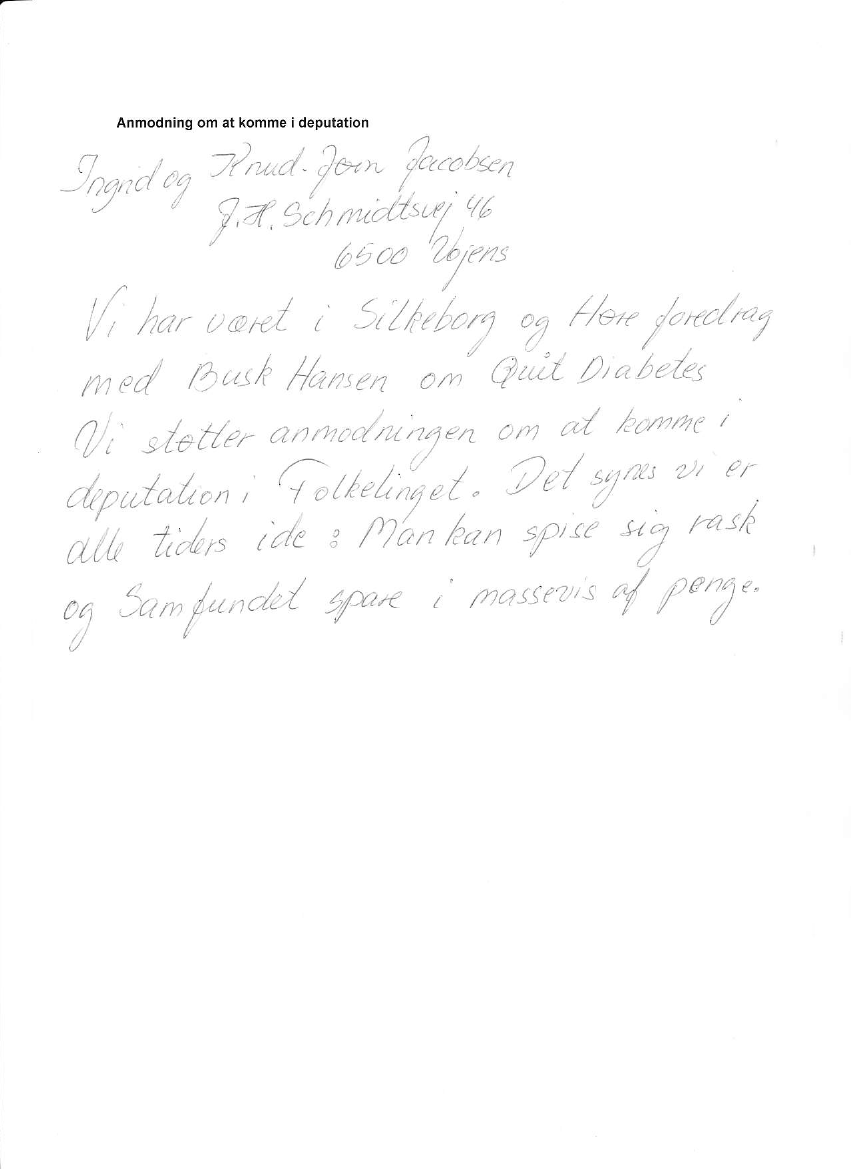 Anmodning om at komme i deputation
Ingrid og Knud-Jørn Jacobsen
J.H. Schmidtsvej 46
6500 Vojens
Vi har været i Silkeborg og Høre foredrag
med Busk Hansen om Quit Diabetes
Vi støtter anmodningen om at komme i
deputation i Folketinget. Det synes vi er
alle tiders ide : Man kan spise sig rask
og Samfundet spare i massevis af penge.